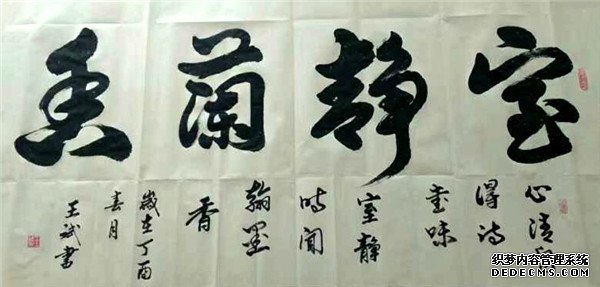 室靜蘭香
心清自
得詩
書味
室靜
時聞
翰墨
香
歲在丁酉
春月
王斌書
织梦内容管理系统
DEDECMS.COM